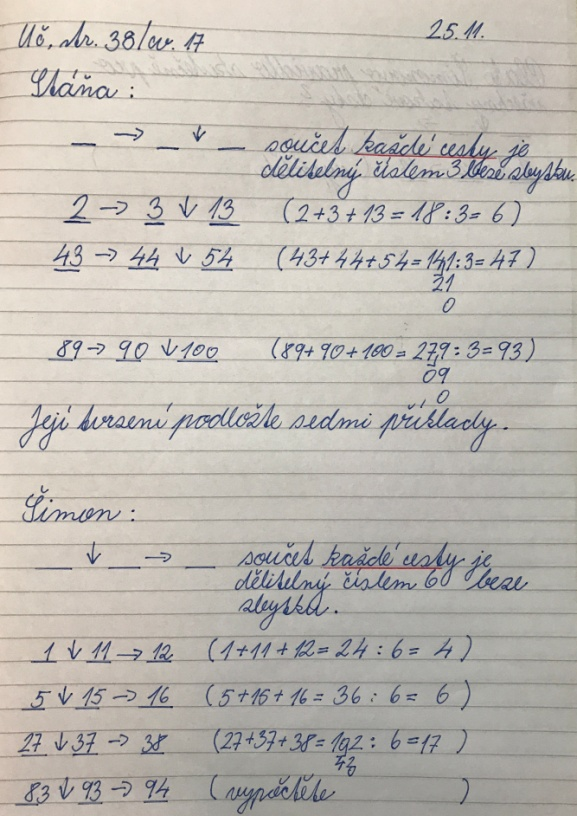 Uč. str. 38/cv. 17 25.11.
Stáňa:
_ → _ ↓ _ součet každé cesty je
dělitelný číslem 3 beze zbytku.
2 → 3 ↓ 13 (2+3+13=18:3=6)
43 → 44 ↓ 54 (43+44+54=141:3=47)
21
0
89 → 90 ↓ 100 (89+90+100=279:3=93)
09
0
Její tvrzení podložte sedmi příklady.
Šimon:
_ ↓ _ → _ součet každé cesty je
dělitelný číslem 6 beze
zbytku.
1 ↓ 11 → 12 (1+11+12=24:6=4)
5 ↓ 15 → 16 (5+15+16=36:6=6)
27 ↓ 37 → 38 (27+37+38=102:6=17)
42
0
83 ↓ 93 → 94 (vypočtěte )